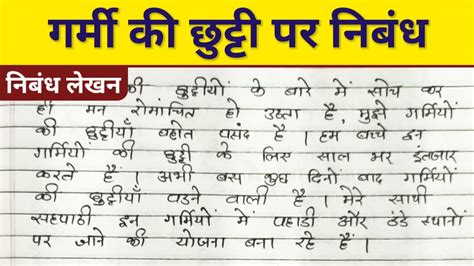 गर्मी की छुट्टी पर निबंध
निबंध लेखन
की छुट्टीयों के बारे में सोच कर
ही मन रोमांचित हो उठता है, मुझे गर्मियों
की छुट्टीयाँ बहोत पसंद है । हम बच्चे इन
गर्मियों की छुट्टी के लिए साल भर इंतजार
करते हैं । अभी बस कुछ दिनों बाद गर्मियों
की छुट्टीयाँ पडने वाली है । मेरे साथी
सहपाठी इन गर्मियों में पहाडी और ठंडे स्थानों
पर जाने की योजना बना रहे हैं ।